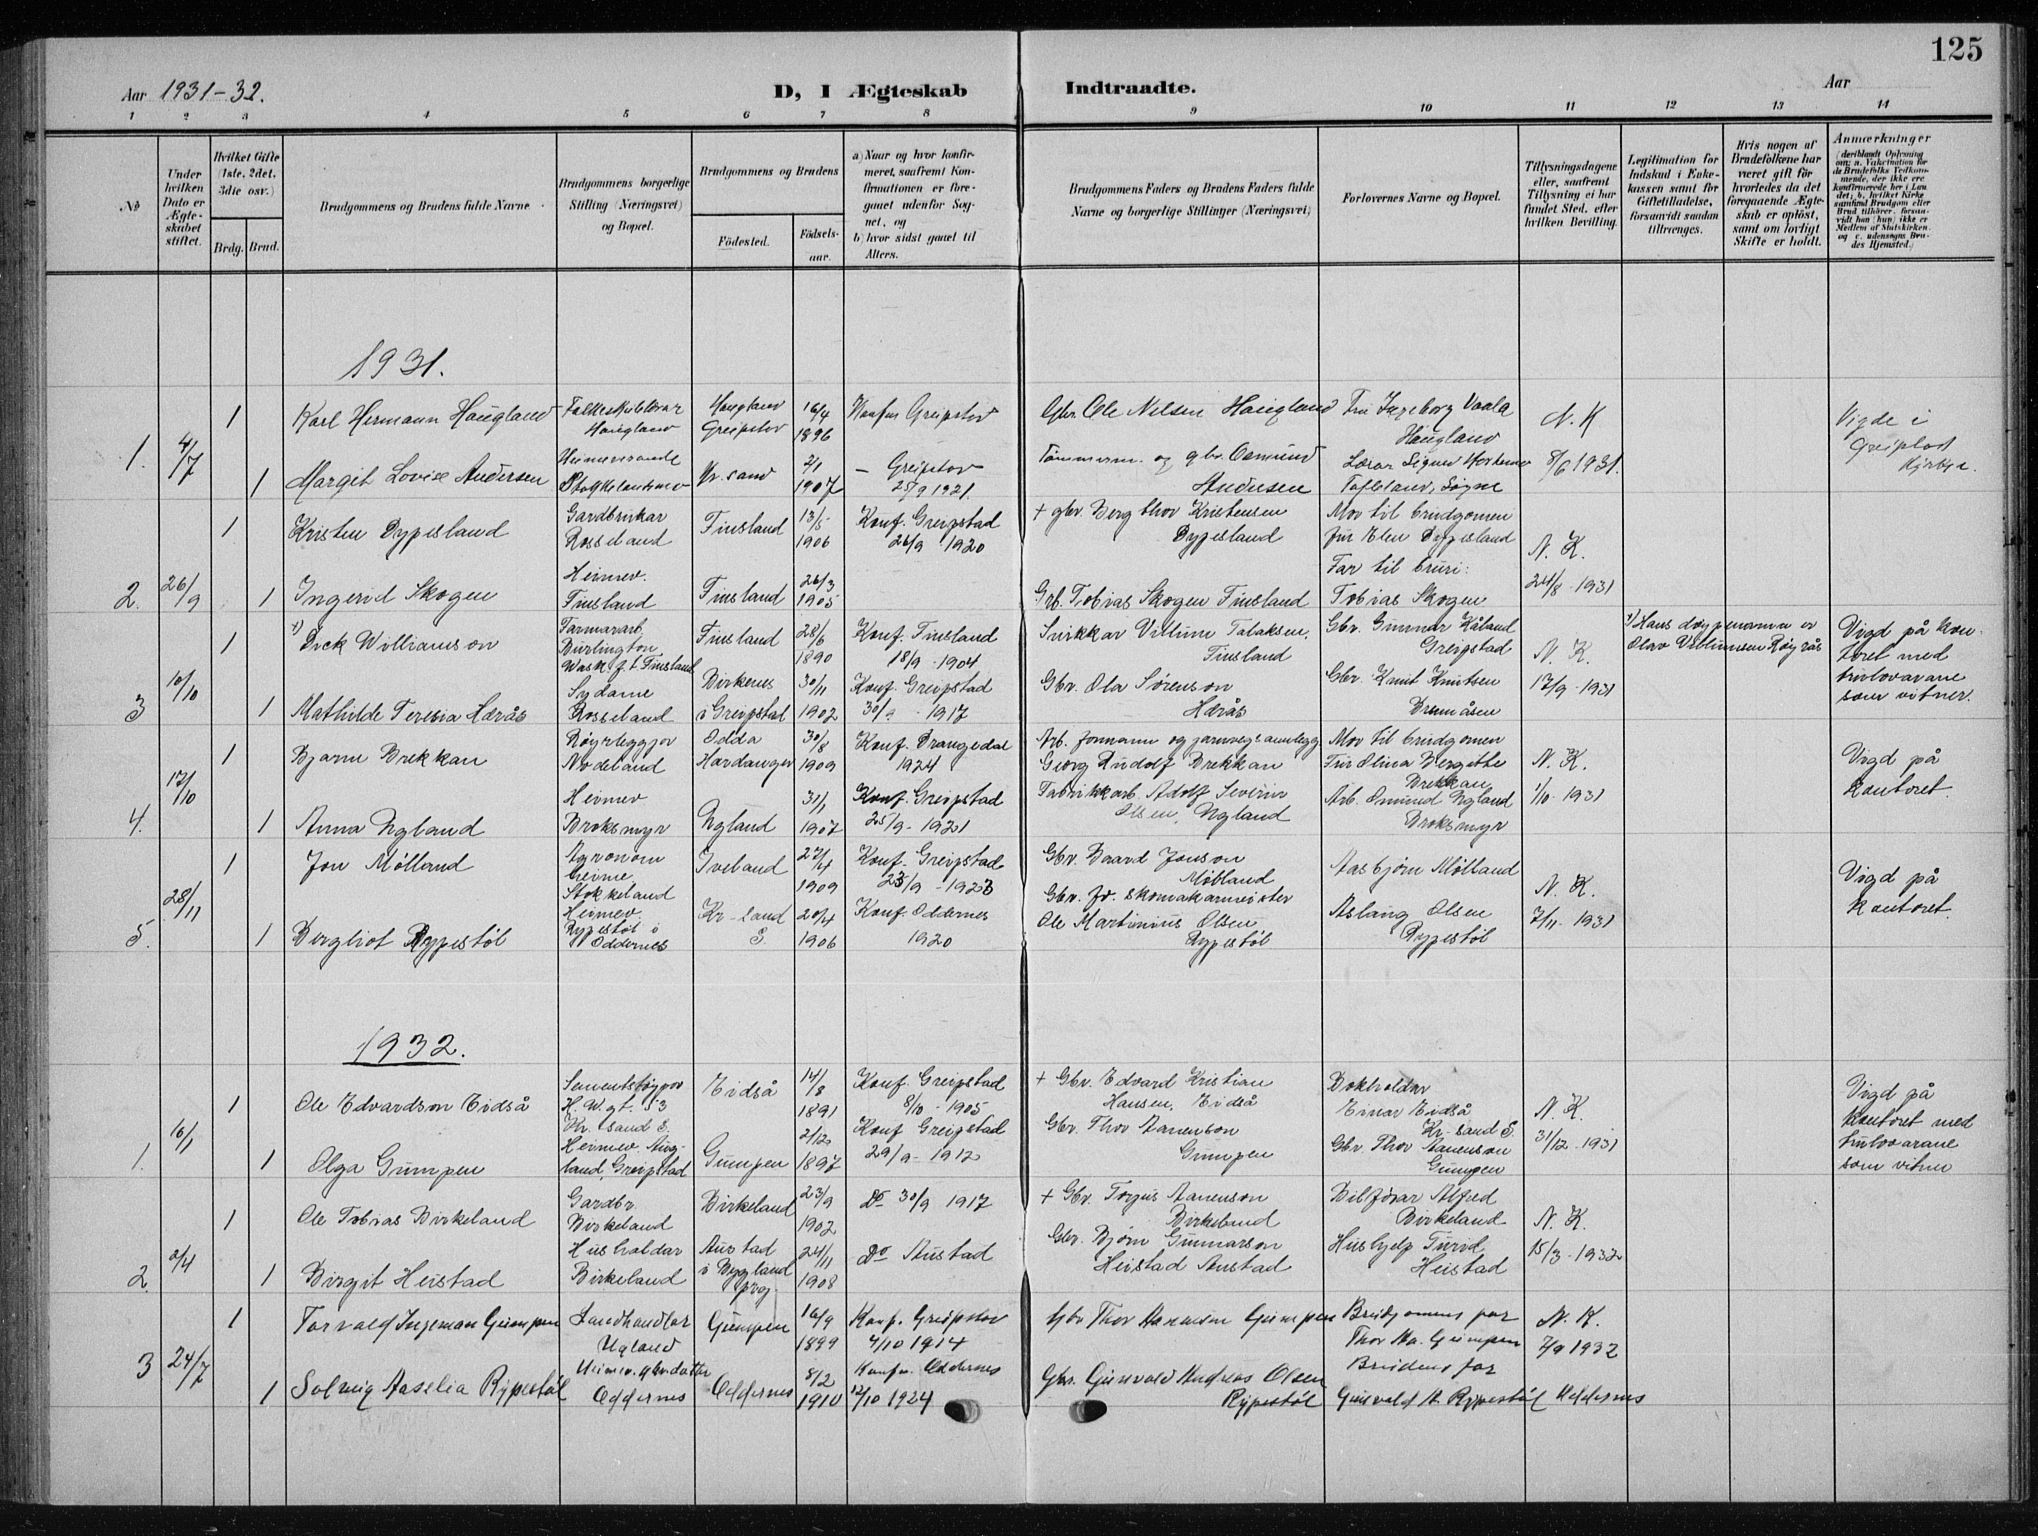 125
Aar 1931-32.
D, I Ægteskab Indtraadte.
Aar
1 2 3 4 5 6 7 8 9 10 11 12 13 14
No
Under hvilken Dato er Ægteskabet stiftet.
Hvilket Gifte (1ste, 2det, 3die osv.)
Brdg. Brud.
Brudgommens og Brudens fulde Navne
Brudgommens borgerlige Stilling (Næringsvei) og Bopæl.
Brudgommens og Brudens
Fødested. Fødselsaar.
a) Naar og hvor konfirmeret, saafremt Konfirmationen er foregaaet udenfor Sognet, og
b) hvor sidst gaaet til Alters.
Brudgommens Faders og Brudens Faders fulde Navne og borgerlige Stillinger (Næringsvei)
Forlovernes Navne og Bopæl.
Tillysningsdagene eller, saafremt Tillysning ei har fundet Sted, efter hvilken Bevilling.
Legitimation for Indskud i Enkekassen samt for Giftetilladelse, forsaavidt saadan tiltrænges.
Hvis nogen af Brudefolkene har været gift før hvorledes da det foregaaende Ægteskab er opløst, samt om lovligt Skifte er holdt.
Anmærkninger (deriblandt Oplysning om: a. Vakcination for da Brudefolks Vedkommende, der ikke ere konfirmerede her i Landet; b. hvilket Kirkesamfund Brudgom eller Brud tilhører, forsaavidt han (hun) ikke er Medlem af Statskirken, og c. udensogns Brudes Hjemsted.)
1931.
1 Karl Hermann Haugland Folkeskulelærar Haugland Haugland Greipstov 16/4 1896 Konfm Greipstov Gbr. Ole Nilsen Haugland Fru Ingeborg Vaala Haugland N. K. Vigde i Greipstad Kjyrkja.
1. 4/7 1 Margit Lovise Andersen Heimeverande Kr. sand 2/1 1907 - Greipstov 25/9 1921. Tømmerm. og gbr. Osmund Andersen Lærar Sigurd Tofteland, Søgne 8/6 1931.
1 Kristen Dypesland Gardbrukar Rosseland Finsland 13/5 1906 Konf. Greipstad 26/9 - 1920 + gbr. Bergthor Kristensen Dypesland Mor til brudgomen fru Elen Dypesland N. K.
2. 26/9 1 Ingerid Skogen Heimev. Finsland Finsland 26/3 1905 Grb. Tobias Skogen Finsland Far til bruri: Tobias Skogen 24/8 - 1931
1 1) Dick Williamson Farmararb. Burlington Wash. f. t. Finsland Finsland 28/6 1890 Konf. Finsland 18/9 - 1904 Snikkar Villum Tabaksen, Finsland Gbr. Gunnar Håland Greipstad N. K. 1) Hans døypenamn er Olav Viblumsen Røyrås Vigd på kontoret med trulovarane som vitner.
3 10/10 1 Mathilde Teresia Hærås Sydame Rosseland Birkenes i Greipstad 30/11 1902 Konf. Greipstad 30/9 - 1917 Gbr. Ola Sørenson Hærås Gbr. Knut Knutsen Brunåsen 17/9 - 1931
1 Bjarne Brekkan Røyrleggjar Nodeland Odda Hardanger 30/8 1909 Konf. Drangedal 1924 Arb. formann og jarnvegsanlegg Georg Rudolf Brekkan Mor til brudgomen Fru Olina Bergette Brekkan N. K. Vigd på kontoret.
4. 17/10 1 Anna Ugland Heimev Broksmyr Ugland 31/1 1907 Konf. Greipstad 25/9 - 1921 Fabrikkarb. Adolf Severin Olsen, Ugland Arb. Omund Ugland Broksmyr 1/10 - 1931
1 Jon Mølland Agronom heime Stokkeland Iveland 27/4 1909 Konf. Greipstad 23/9 - 1923 Gbr. Baard Jonson Mølland Aasbjørn Mølland N. K. Vigd på kontoret.
5. 28/11 1 Bergliot Rypestøl Heimev. Rypestøl i Oddernes Kr-sand S. 20/4 1906 Konf. Oddernes 1920 Gbr. fv. skomakarmeister Ole Martinius Olsen Rypestøl Aslaug Olsen Rypestøl 7/11 - 1931
1932.
1 Ole Edvardson Eidså Sementstøypar H. W. gt. 53 Kr. sand S. Eidså 14/8 1891 Konf. Greipstad 8/10 - 1905 + Gbr. Edvard Kristian Hansen, Eidså Bokhaldar Einar Eidså Kr-sand S. N. K. Vigd på kontoret med trulovarane som vitne
1. 16/1 1 Olga Gumpen Heimev. Haugland, Greipstad Gumpen 2/12 1897 Konf Greipstad 29/9 - 1912 Gbr. Thor Aanenson Gumpen Gbr Thor Aanenson Gumpen 31/12 - 1931
1 Ole Tobias Birkeland Gardbr. Birkeland Birkeland 23/9 1902 Do 30/9 1917 + Gbr. Torjus Aanenson Birkeland Bilførar Alfred Birkeland N. K.
2. 2/4 1 Birgit Heistad Hushaldar Birkeland Austad i Bygland prg. 24/11 1908 Do Austad Gbr. Bjørn Gunnarson Heistad Austad Hushjelp Turid Heistad 15/3 - 1932
1 Torvald Ingeman Gumpen Landhandlar Ugland Gumpen 16/9 1899 Konf. Greipstov 4/10 1914 Gbr Thor Aanensen Gumpen Brudgomens far Thor Aa. Gumpen N. K. 7/7 1932
3 24/7 1 Solveig Aaselia Rypestøl Heimev. gbr.datter Oddernes Oddernes 8/2 1910 Konf. Oddernes 12/10 1924 Gbr. Gunvald Andreas Olsen Rypestøl Brudens far Gunvald A. Rypestøl Oddernes